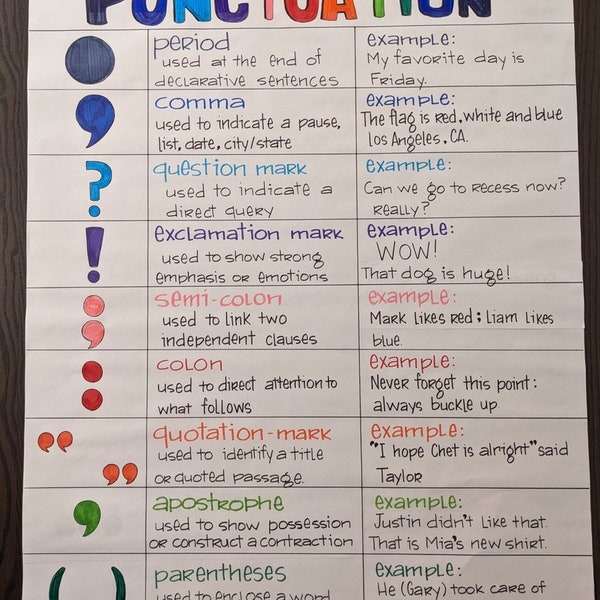 PUNCTUATION
period
used at the end of
declarative sentences
example:
My favorite day is
Friday.
comma
used to indicate a pause,
list, date, city/state
example:
The flag is red, white and blue
los Angeles, CA.
?
question mark
used to indicate a
direct query
example:
Can we go to recess now?
Really?
!
exclamation mark
used to show strong
emphasis or emotions
example:
WOW!
That dog is huge!
;
semi-colon
used to link two
independent clauses
example:
Mark likes red; liam likes
blue.
:
colon
used to direct attention to
what follows
example:
Never forget this point:
always buckle up
“ ”
quotation-mark
used to identify a title
or quoted passage.
example:
"I hope Chet is alright" said
Taylor
’
apostrophe
used to show possession
or construct a contraction
example:
Justin didn't like that.
That is Mia's new shirt.
( )
parentheses
used to enclose a word
example:
He (Gary) took care of